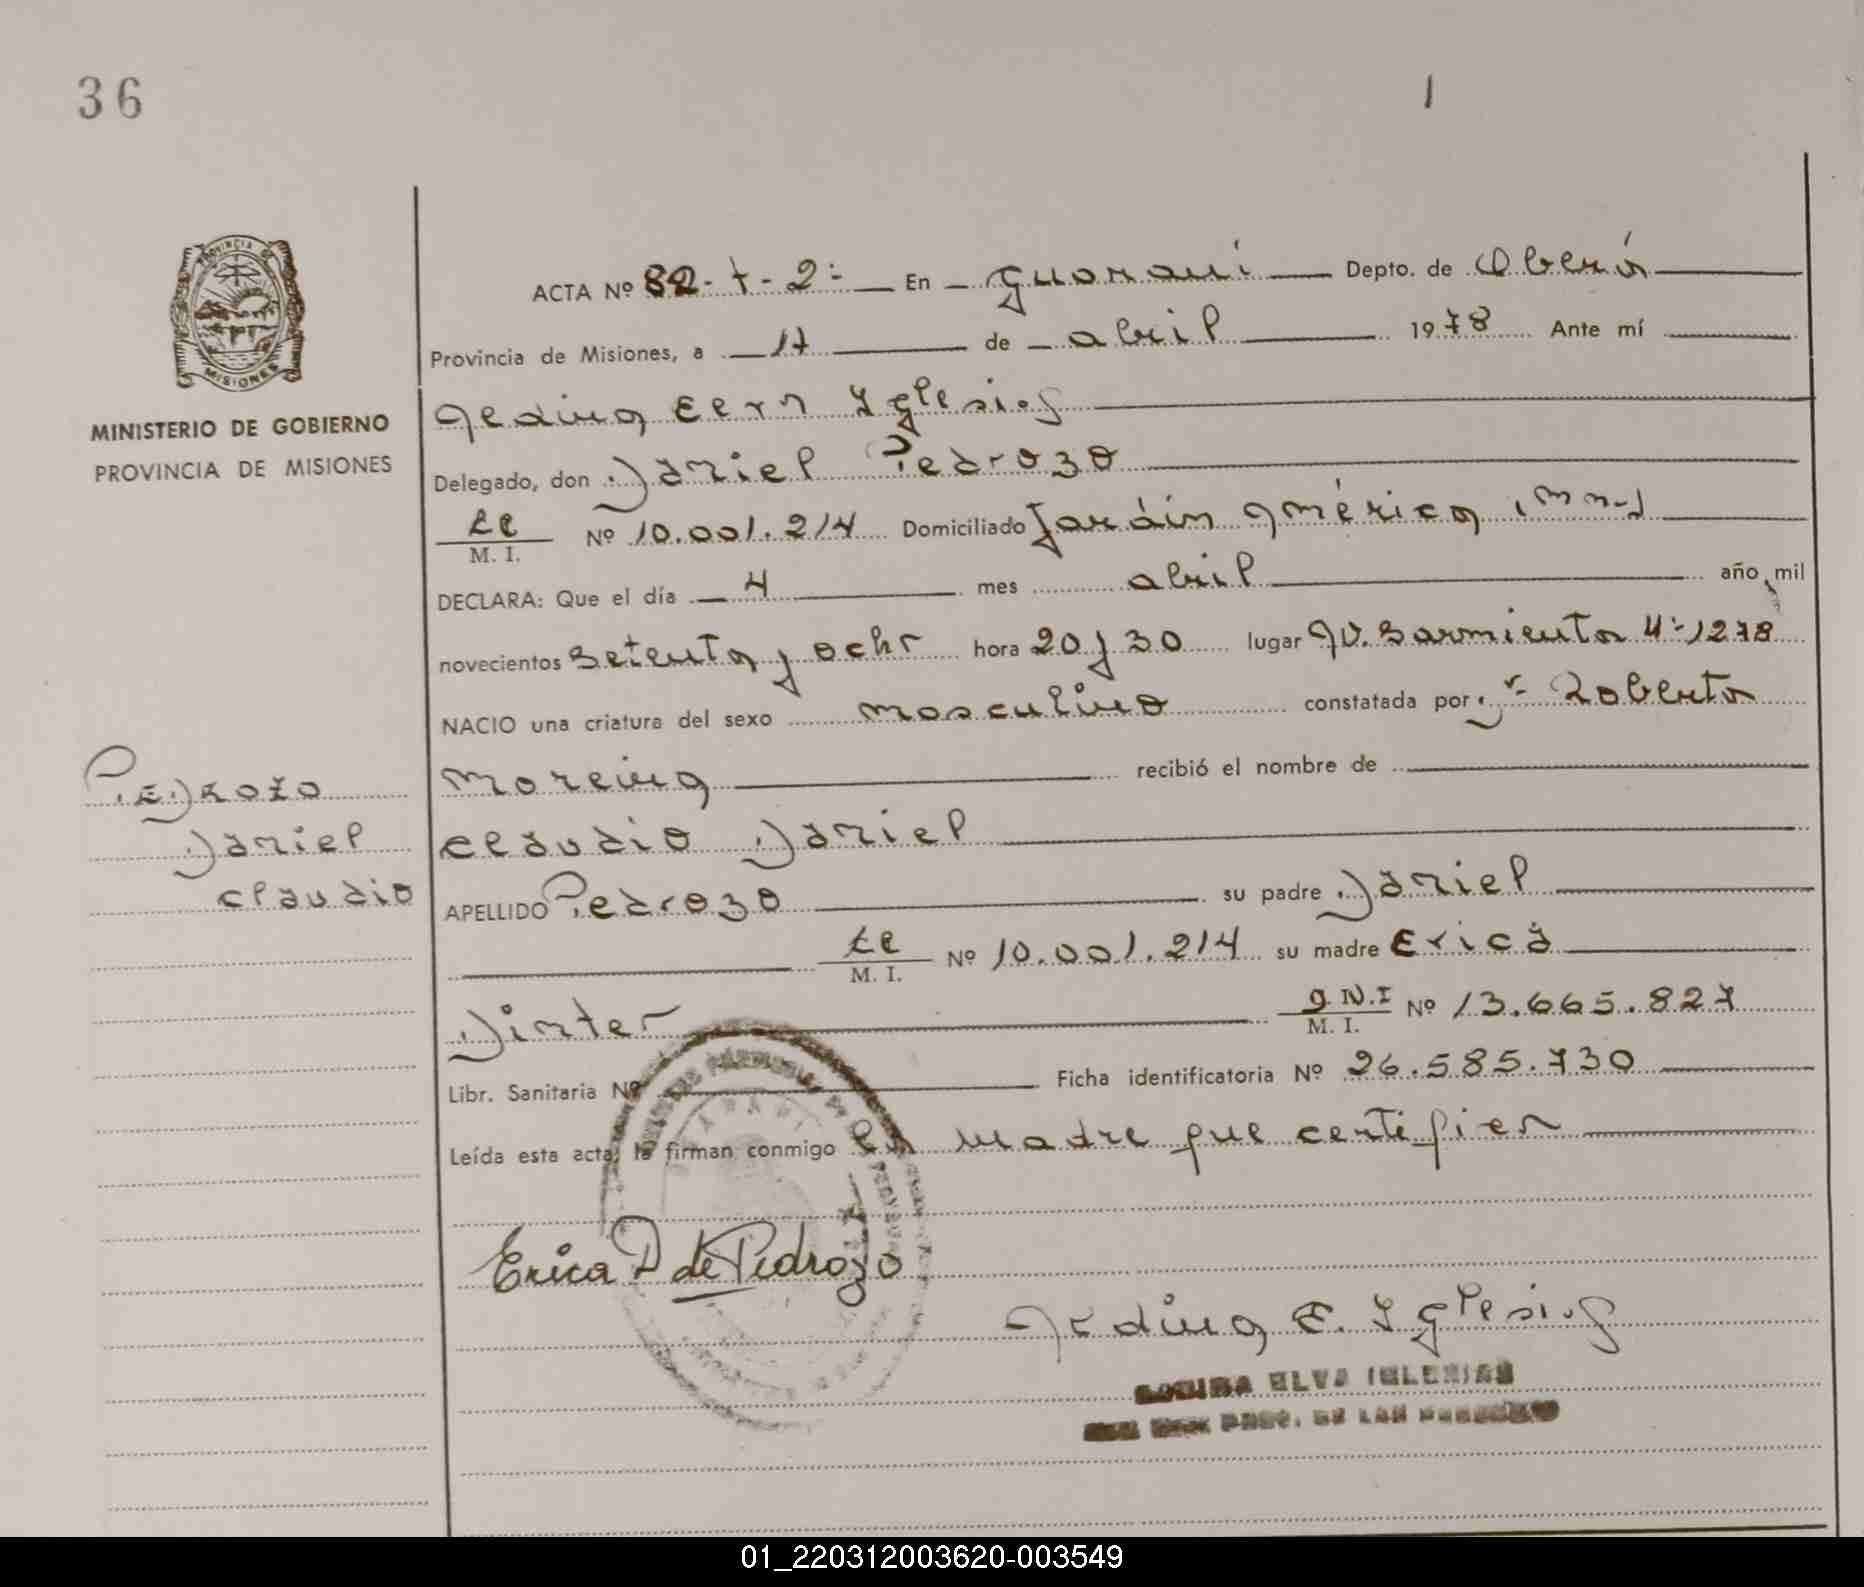 36
1
PROVINCIA DE
MISIONES
MINISTERIO DE GOBIERNO
PROVINCIA DE MISIONES
ACTA Nº 82-t-2º En Guarani Depto. de Oberá
Provincia de Misiones, a 17 de abril 1978 Ante mí
Iglesias
Delegado, don Daniel Pedrozo
LE
M. I. Nº 10.001.214 Domiciliado Jardín América (Mnes)
DECLARA: Que el día 4 mes abril año mil
novecientos setenta y ocho hora 20 y 30 lugar Av. Sarmiento Nº 1278
NACIO una criatura del sexo masculino constatada por Dr. Roberto
Moreira recibió el nombre de
Claudio Daniel
APELLIDO Pedrozo su padre Daniel
LE
M. I. Nº 10.001.214 su madre Erica
Dinter D.N.I
M. I. Nº 13.665.827
Libr. Sanitaria Nº Ficha identificatoria Nº 26.585.730
Leída esta acta, la firman conmigo la madre que certifico
Erica D de Pedrozo
E. Iglesias
ELVA IGLESIAS
PROV. DE LAS PERSONAS
Pedrozo
Daniel
Claudio
01_220312003620-003549